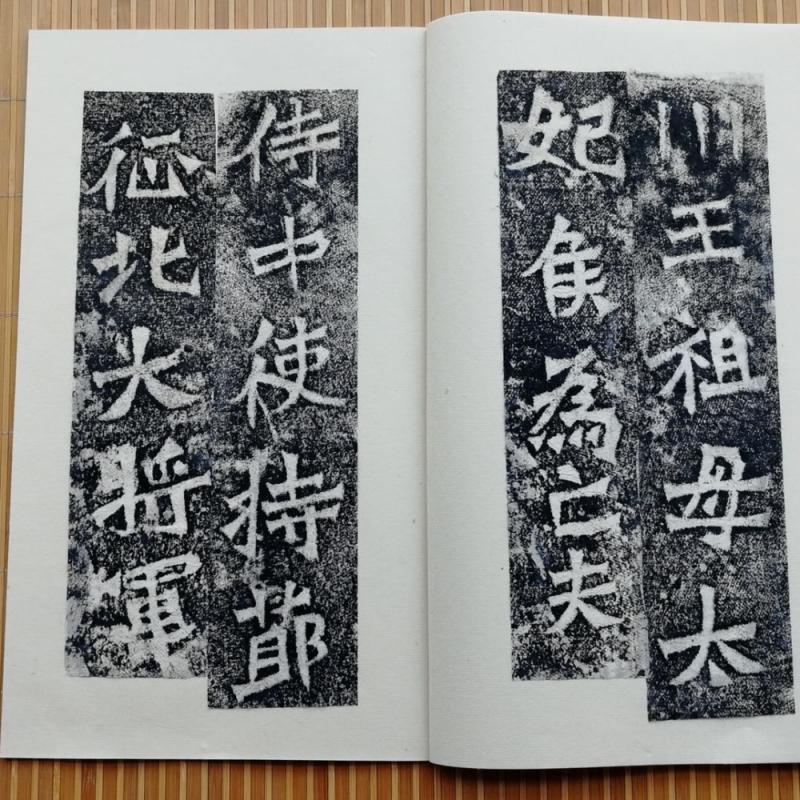 川王祖母太
妃侯為亡夫
侍中使持節
征北大将軍